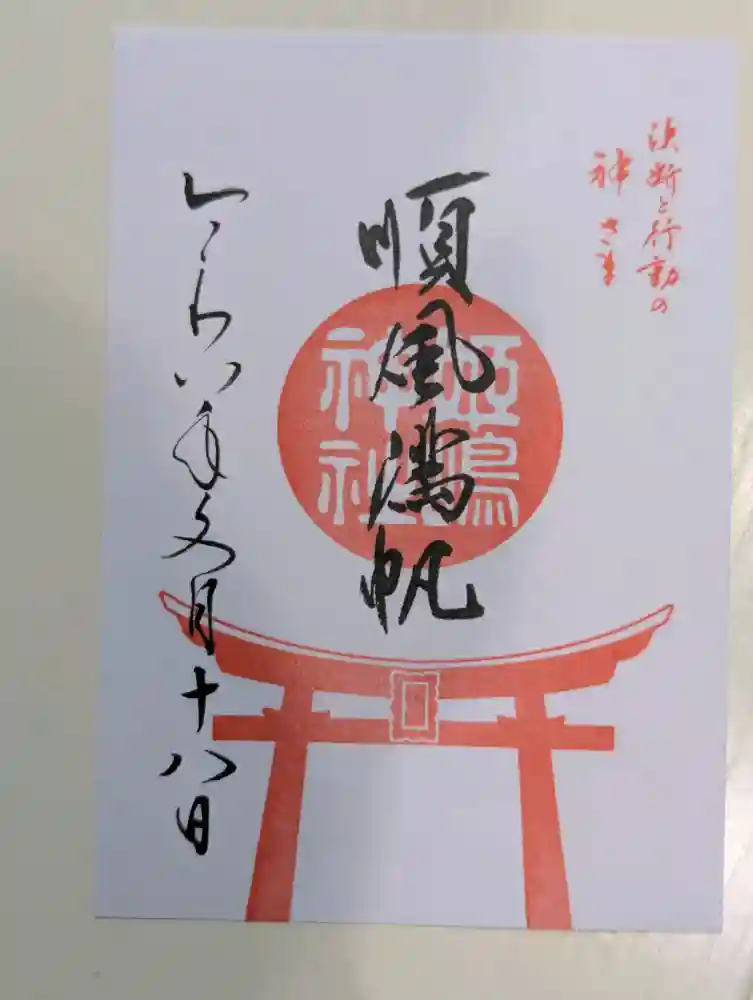 決断と行動の
神さま
順風満帆
姫嶋
神社
令和六年文月十八日